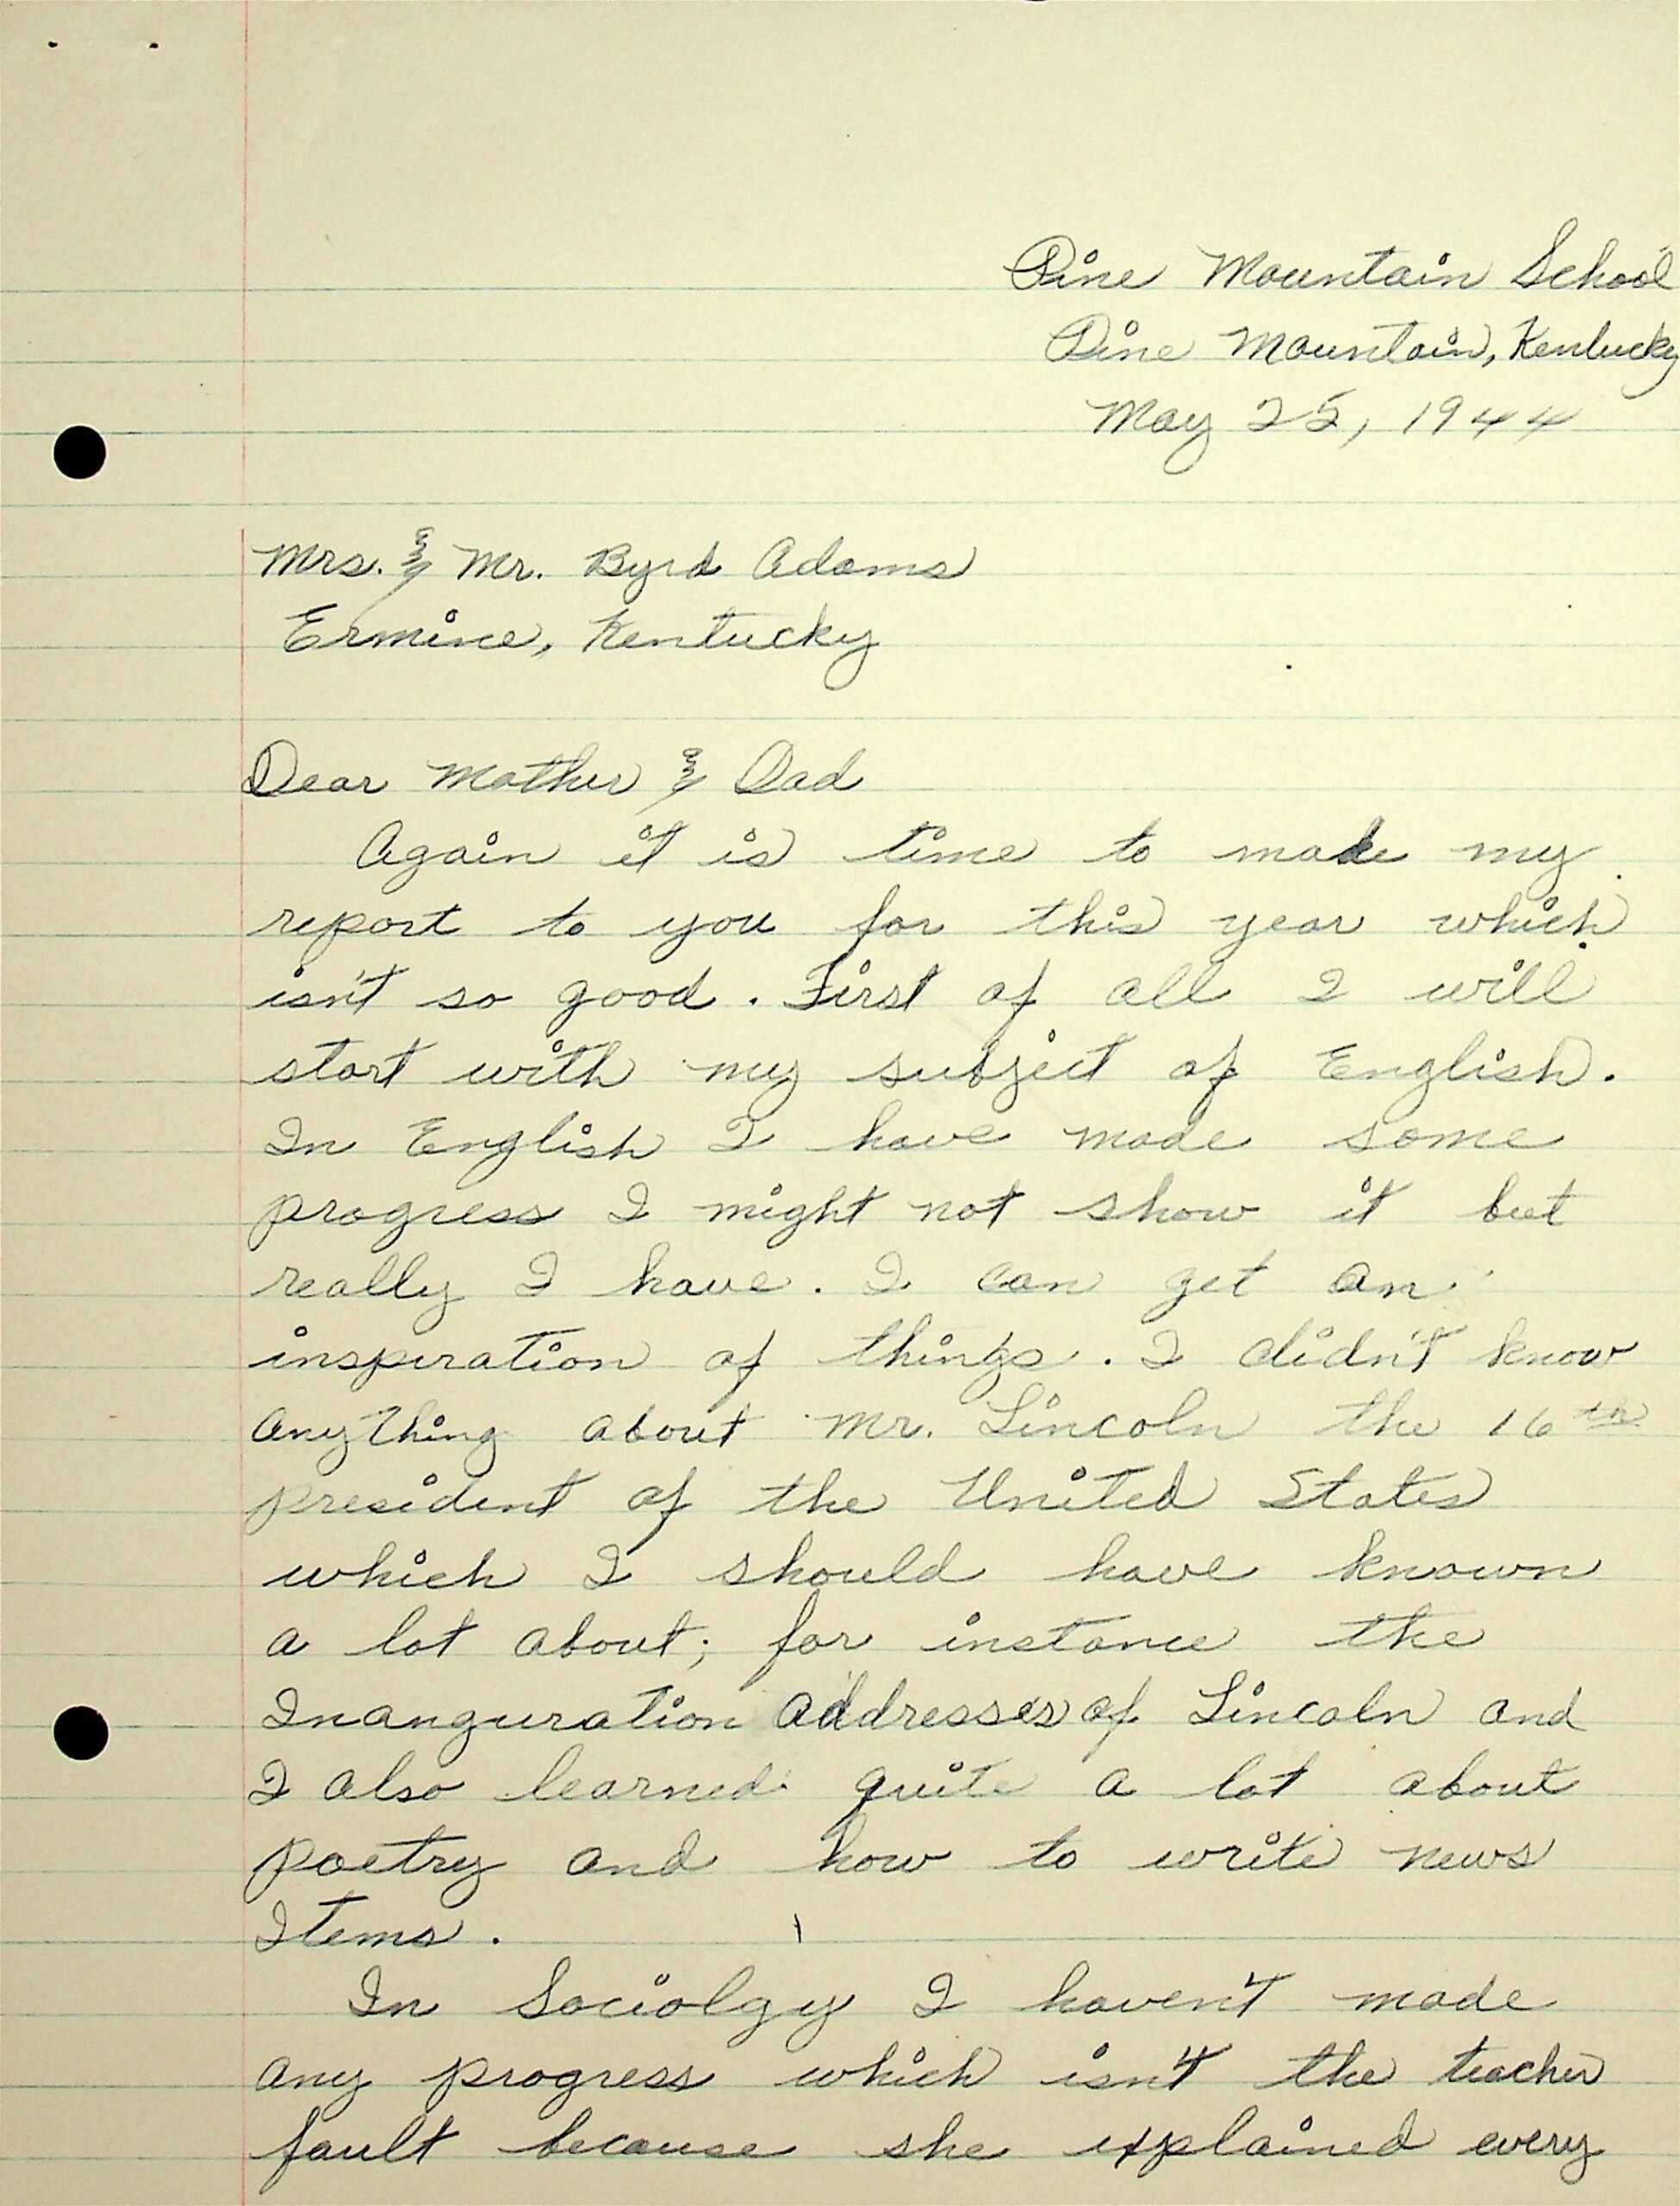 Pine Mountain School
Pine Mountain, Kentucky
May 25, 1944
Mrs. & Mr. Byrd Adams
Ermine, Kentucky
Dear Mother & Dad
Again it is time to make my
report to you for this year which
isn't so good. First of all I will
start with my subject of English.
In English I have made some
progress I might not show it but
really I have. I can get an
inspiration of things. I didn't know
anything about Mr. Lincoln the 16th
president of the United States
which I should have known
a lot about; for instance the
Inanguration Addresses of Lincoln and
I also learned quite a lot about
poetry and how to write news
Items.
In Sociolgy I haven't made
any progress which isn't the teacher
fault because she explained every